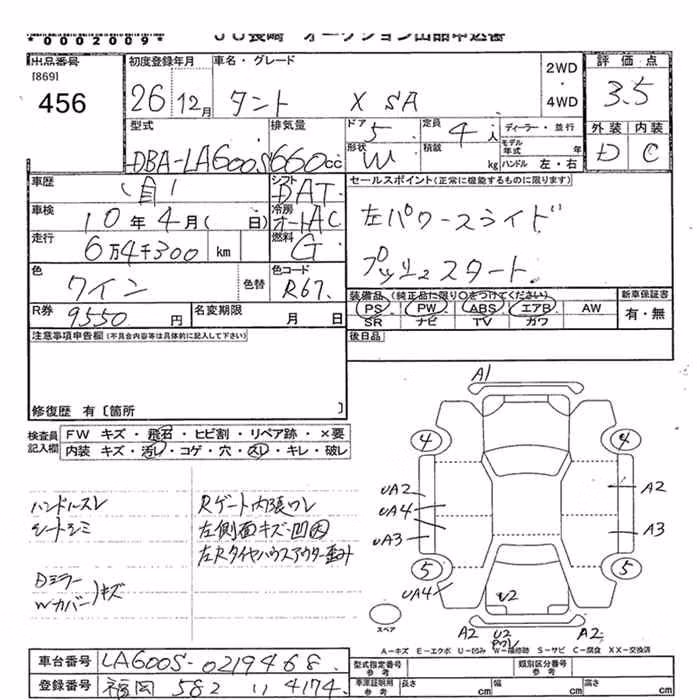 *0002009* JU長崎 オークション出品申込書
出品番号 [869] 456
初度登録年月 26年 12月
車名・グレード タント X SA
2WD・4WD
評価点 3.5
外装 D 内装 C
型式 DBA-LA600S
排気量 660cc
ドア 5 定員 4人
形状 W 積載 kg
ディーラー・並行
モデル年式 年
ハンドル 左・右
車歴 (自)
シフト DAT
車検 10年4月( 日)
冷房 オートAC
走行 6万4千300 km
燃料 G
色 ワイン 色替
色コード R67
R券 9550円
名変期限 月 日
セールスポイント(正常に機能するものに限ります)
左パワースライド
プッシュスタート
装備品(純正品に限り○をつけてください)
PS PW ABS エアB AW
SR ナビ TV カワ
新車保証書 有・無
注意事項申告欄(不具合内容等は具体的に記入して下さい)
後日品
修復歴 有〔箇所 〕
検査員記入欄
FW キズ・飛石・ヒビ割・リペア跡・×要
内装 キズ・汚レ・コゲ・穴・スレ・キレ・破レ
ハンドルスレ
シートシミ
Dミラー
Wカバー)キズ
Rゲート内張ワレ
左側面キズ・凹因
左Rタイヤハウスアウター歪ミ
A1
4 4
UA2 A2
UA4
UA3 A3
5 5
UA4
U2
スペア
A2 U2 A2
A-キズ E-エクボ U-凹み W-補修跡 S-サビ C-腐食 XX-交換済
車台番号 LA600S-0219468
登録番号 福岡 582 い 4174
型式指定番号 参考
類別区分番号 参考
車庫証明 参考 長さ cm 幅 cm 高さ cm